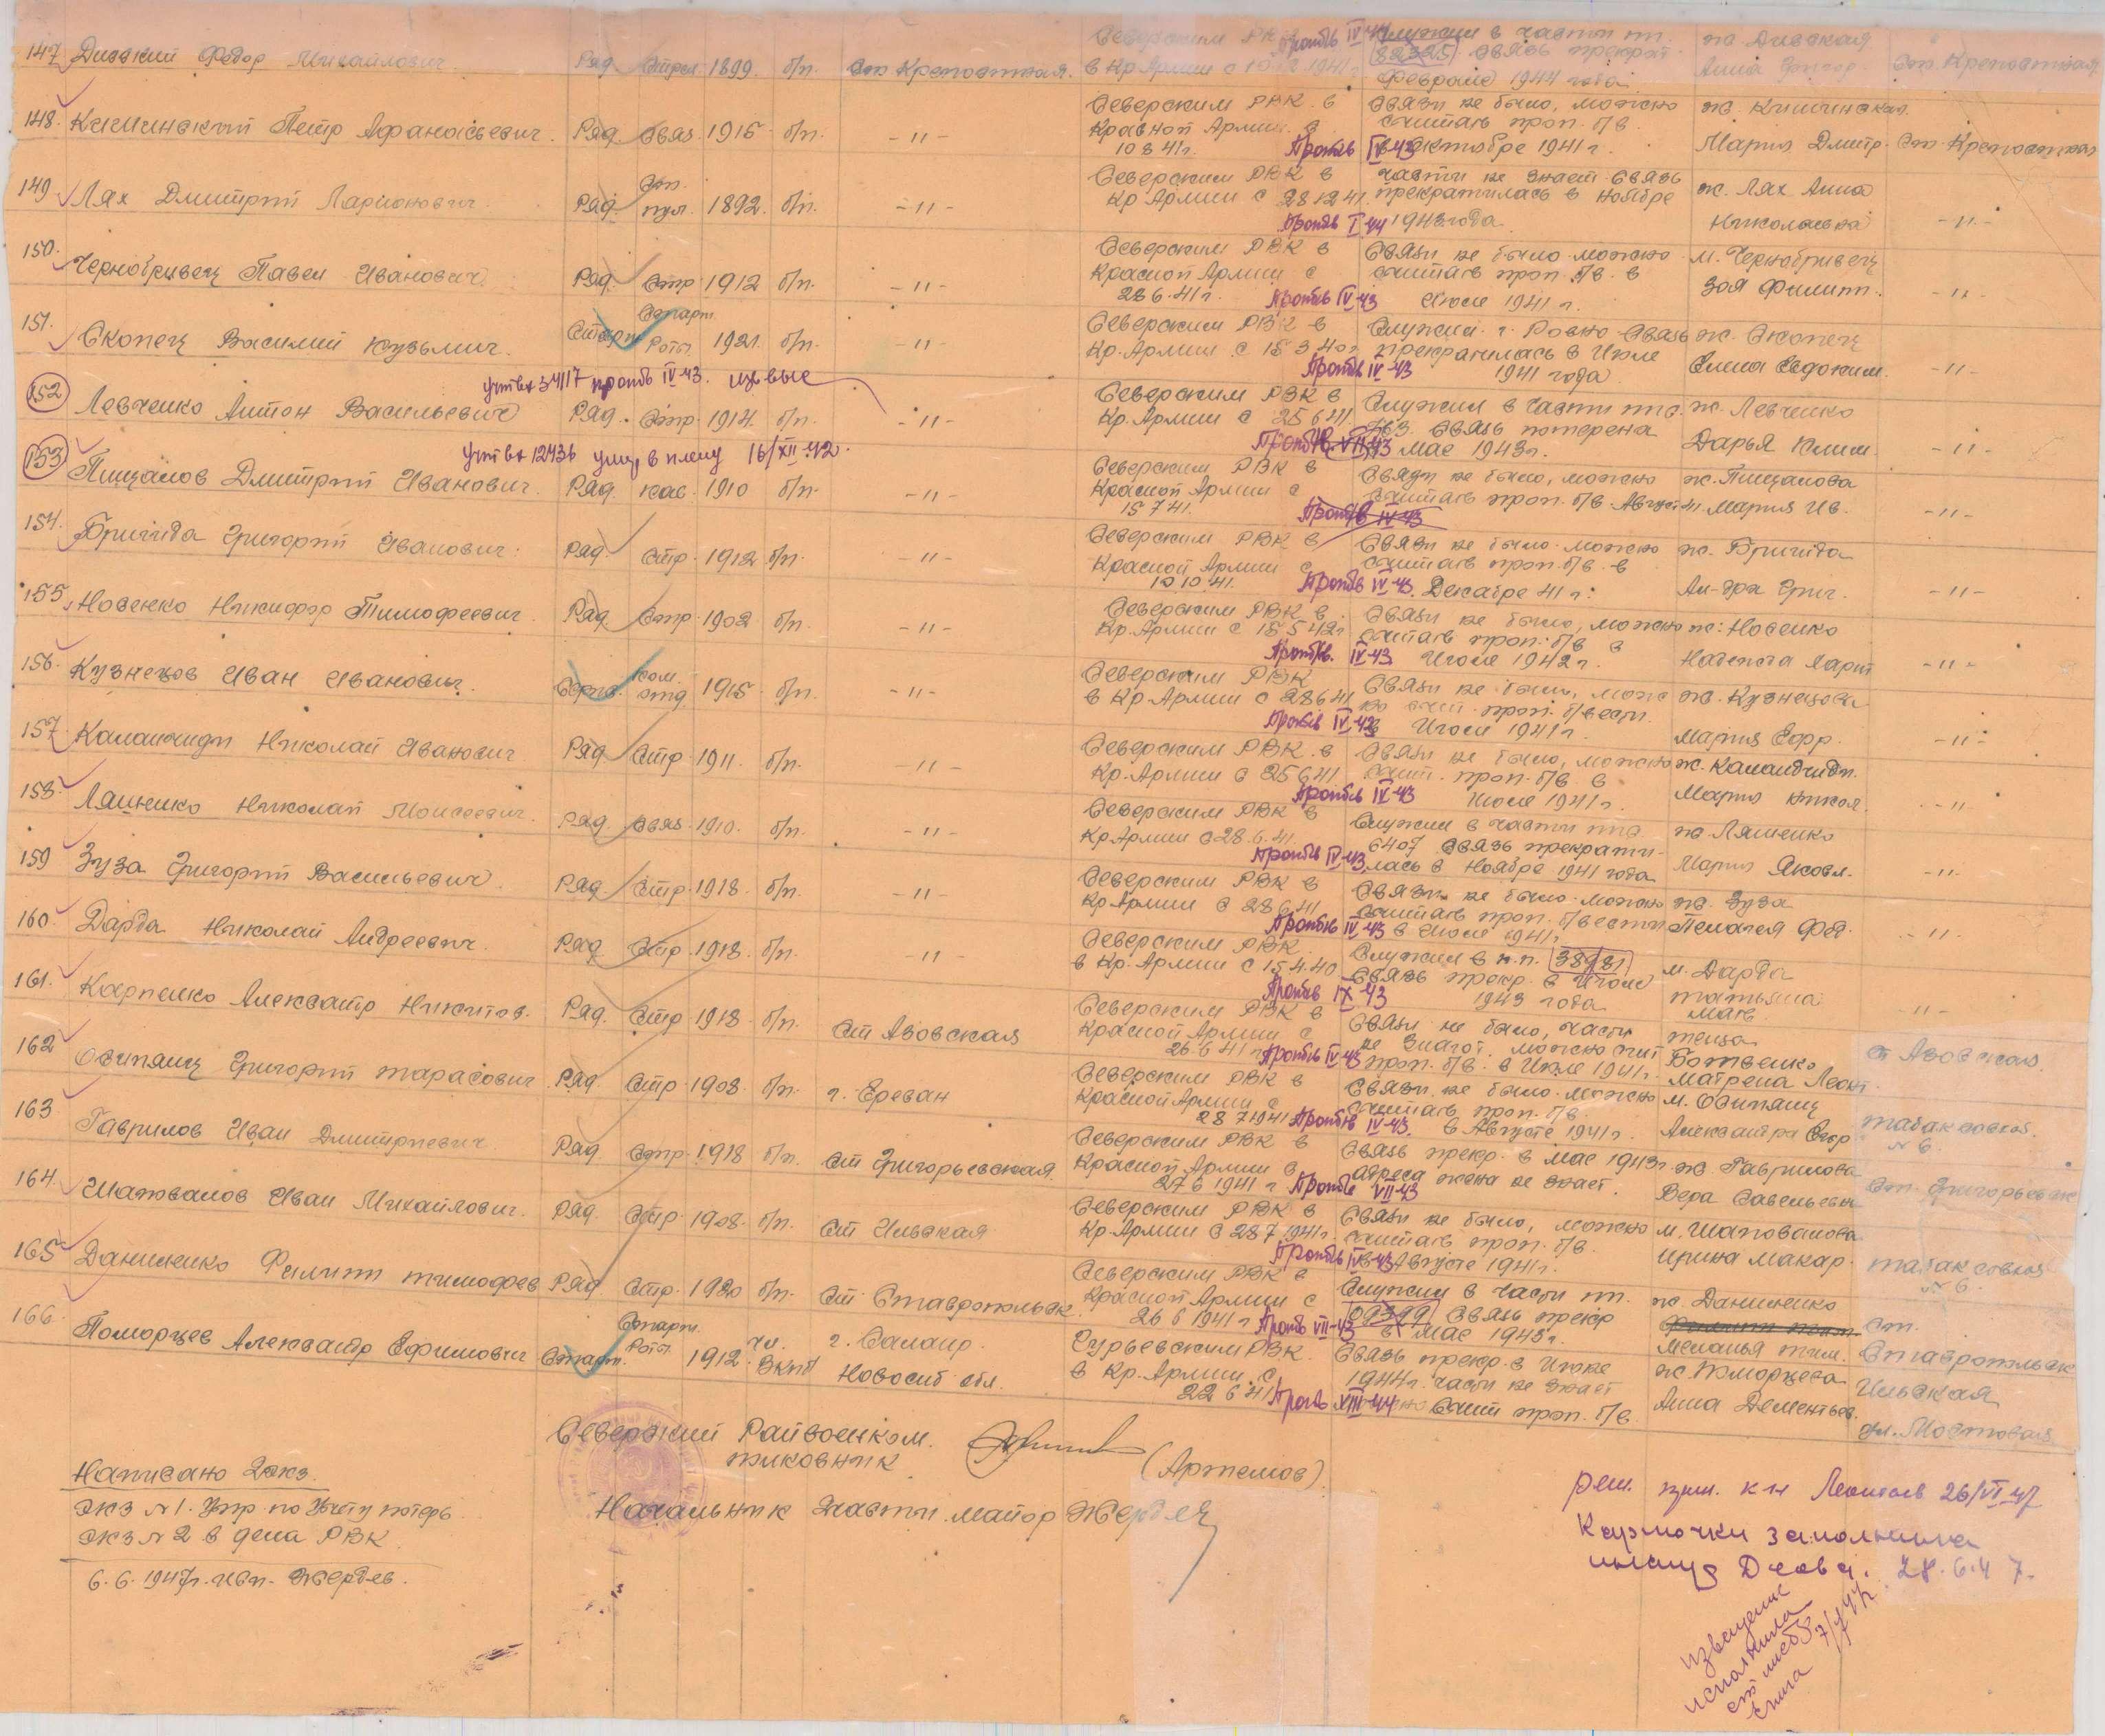 147 Дивский Федор Михайлович Ряд Стрел 1899. б/п. ст Крепостная. Северским РВК в Кр Армии с 1941г Пропбв IV 44 Служил в части пп. 82325 связь прекрат. феврале 1944 года ж Дивская Анна Григор. ст. Крепостная
148. Кишинский Петр Афанасьевич. Ряд. связ 1915 б/п. -"- Северским РВК в Красной Армии с 10 8 41г. Пропбв IV-43 Связи не было, можно считать проп. б/в. в октобре 1941 г. ж. Кишинская. Мария Дмитр. ст. Крепостная
149 Лях Дмитрий Ларионович. Ряд. Ст. пул. 1892. б/п. -"- Северским РВК в Кр Армии с 28 12 41. Пропбв I-44 части не знает связь прекратилась в Ноябре 1943 года. ж. Лях Анна Николаевна -"-
150. Чернобривец Павел Иванович. Ряд. Стр 1912 б/п. -"- Северским РВК в Красной Армии с 28 6. 41г. Пропбв IV-43 Связи не было можно считать проп. б/в. в Июле 1941 г. м. Чернобривец Зоя Филипп. -"-
151. Скопец Василий Кузьмич. Старш Старш. Роты. 1921. б/п. -"- Северским РВК в Кр. Армии с 15 3 40г Пропбв IV-43 Служил г. Ровно Связь прекратилась в Июле 1941 года ж. Скопец Елена Евдоким. -"-
учтв 34117 пропбв IV-43. из выс
152 Левченко Антон Васильевич Ряд. Стр 1914. б/п. -"- Северским РВК в Кр. Армии с 25 6 41 Пропбв VII-43 Служил в части ппс. связь потерена Мае 1943г. ж. Левченко Дарья Клим. -"-
учтв 12436 умер в плену 16/XII-42.
153 Пищалов Дмитрий Иванович. Ряд. кав. 1910 б/п. -"- Северским РВК в Красной Армии с 15 7 41. Пропбв IV-43 Связи не было, можно считать проп. б/в. Август 41. ж. Пищалова Мария Ив. -"-
154. Бригида Григорий Иванович. Ряд Стр. 1912 б/п. -"- Северским РВК в Красной Армии с 10 10 41. Пропбв IV-43. Связи не было можно считать проп. б/в. в Декабре 41 г. ж. Бригида Ал-дра Григ. -"-
155. Носенко Никифор Тимофеевич. Ряд. Стр 1902 б/п. -"- Северским РВК в Кр. Армии с 15 5 42г Пропбв. IV-43 Связи не было, можно считать проп. б/в в Июле 1942 г. ж. Носенко Надежда Ларит -"-
156. Кузнецов Иван Иванович. Серж. ком. отд 1915 б/п. -"- Северским РВК в Кр Армии с 28 6 41 Пропбв IV-43 Связи не было, можно счит. проп. б/вести. в Июле 1941 г. ж. Кузнецова Мария Ефр. -"-
157. Каланчиди Николай Иванович Ряд. Стр. 1911. б/п. -"- Северским РВК в Кр. Армии с 25 6 41 Пропбв IV-43 Связи не было, можно счит. проп. б/в. в Июле 1941 г. ж. Каландчиди. Мария Никол. -"-
158. Ляшенко Николай Моисеевич. Ряд. связ. 1910. б/п. -"- Северским РВК в Кр. Армии с 28. 6. 41. Пропбв IV-43. Служил в части ппс 6407 связь прекратилась в Ноябре 1941 года ж Ляшенко Мария Яковл. -"-
159 Зуза Григорий Васильевич. Ряд Стр. 1918. б/п. -"- Северским РВК в Кр Армии с 28 6 41 Пропбв IV-43 Связи не было можно считать проп. б/вести в Июле 1941г ж. Зуза Пелагея Фед. -"-
160. Дарда Николай Андреевич. Ряд Стр 1918. б/п. -"- Северским РВК в Кр. Армии с 15 4. 40 Пропбв IX-43 Служил в п.п. 38981 Связь прекр. в Июле 1943 года м. Дарда Татьяна Матв. -"-
161. Карпенко Александр Никитов. Ряд. Стр 1918 б/п. ст Азовская Северским РВК в Красной Армии с 26 6 41 г Пропбв IV-43 Связи не было, части не знают. можно счит проп. б/в. в Июле 1941г. теща Ботвенко Матрена Леон. ст Азовская
162 Осипянц Григорий Тарасович Ряд. Стр 1908. б/п. г. Ереван Северским РВК в Красной Армии с 28 7 1941 Пропбв IV-43. Связи не было можно считать проп. б/в. в Августе 1941 г. м. Осипянц Александра Егор табаксовхоз. №6.
163 Гаврилов Иван Дмитриевич Ряд Стр 1918 б/п. ст Григорьевская Северским РВК в Красной Армии с 27 6 1941 г Пропбв VII-43 Связь прекр. в Мае 1943г. адреса жена не знает. ж. Гаврилова Вера Савельевн ст. Григорьевск
164. Шаповалов Иван Михайлович. Ряд. Стр. 1908. б/п. ст Ильская Северским РВК в Кр. Армии с 28 7 1941г. Пропбв IV-43 Связи не было, можно считать проп. б/в. в Августе 1941г. м. Шаповалова Ирина Макар. табаксовхоз №6
165 Даниленко Филипп Тимофеев Ряд. Стр. 1920 б/п. ст Ставропольск. Северским РВК в Красной Армии с 26 6 1941 г Пропбв VII-43 Служил в части пп. 09399 Связь прекр в Мае 1943г. ж. Даниленко Меланья Тим. ст. Ставропольск
166. Поморцев Александр Ефимович Старш. Старш. Роты. 1912. чл. ВКПб г. Салаир. Новосиб обл. Гурьевским РВК. в Кр. Армии с 22 6 41 Пропбв VIII-44 Связь прекр. в Июне 1944г. части не знает Счит проп. б/в. ж. Поморцева Анна Дементьев. Ильская ул. Мостовая
Северский Райвоенком.
полковник (Артемов)
Начальник 3 части майор Жердев
Написано 2экз.
экз №1. Упр по Учету потерь
экз №2 в дела РВК
6. 6. 1947г. исп. Жердев.
реш. прин. к-н Леонтьев 26/VI 47
Карточки заполнила
28. 6. 47.
извещение
исполнила